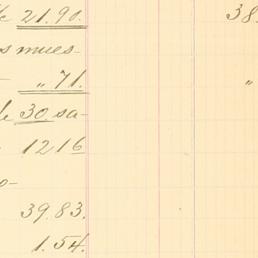 21.90. 38
s mues-
„ 71. „
de 30 sa-
1216
o-
39.83.
1.54.